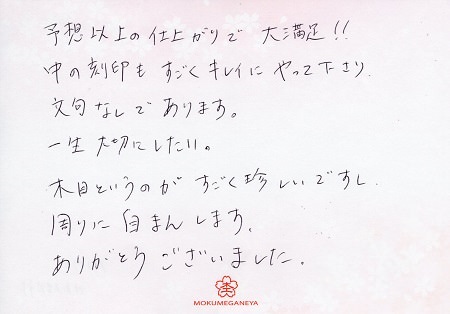 予想以上の仕上がりで 大満足!!
中の刻印も すごくキレイに やって下さり
文句なしであります。
一生大切にしたい。
木目というのが すごく珍しいですし
周りに自まんします。
ありがとうございました。
MOKUMEGANEYA